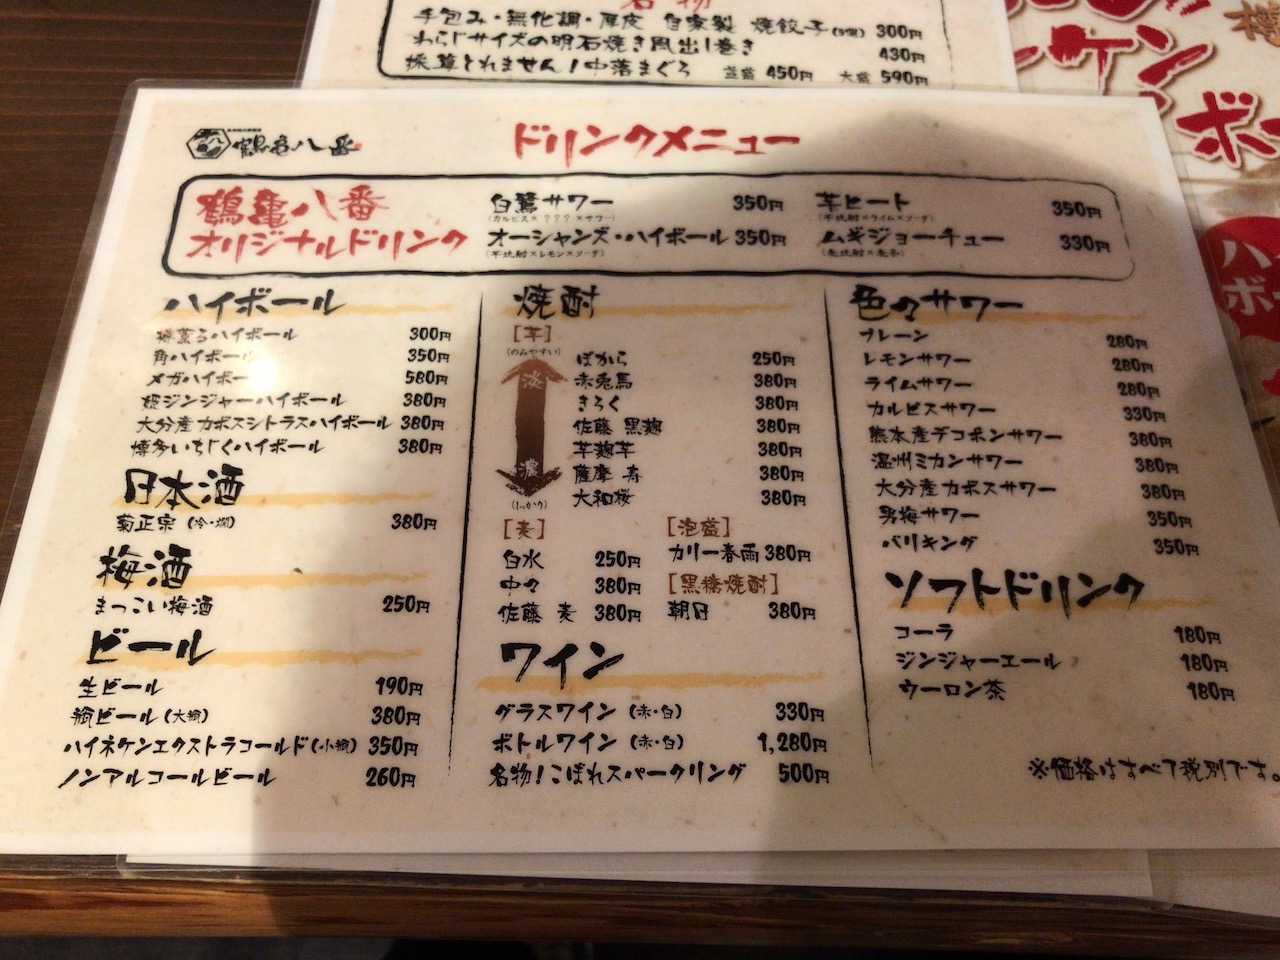 名物
手包み・無化調・厚皮 自家製 焼餃子(5個) 300円
わらじサイズの明石焼き風出し巻き 430円
採算とれません!中落まぐろ 並盛 450円 大盛 590円
鶴亀八番
ドリンクメニュー
鶴亀八番
オリジナルドリンク
白鷺サワー 350円
(カルピス×???×サワー)
オーシャンズ・ハイボール 350円
(芋焼酎×レモン×ソーダ)
芋ヒート 350円
(芋焼酎×ライム×ソーダ)
ムギジョーチュー 330円
ハイボール
樽薫るハイボール 300円
角ハイボール 350円
メガハイボー 580円
姫ジンジャーハイボール 380円
大分産カボスシトラスハイボール 380円
博多いちじくハイボール 380円
日本酒
菊正宗(冷・燗) 380円
梅酒
まっこい梅酒 250円
ビール
生ビール 190円
瓶ビール(大瓶) 380円
ハイネケンエクストラコールド(小瓶) 350円
ノンアルコールビール 260円
焼酎
[芋]
(のみやすい)
淡
濃
(しっかり)
ぽから 250円
赤兎馬 380円
きろく 380円
佐藤 黒麹 380円
芋麹芋 380円
薩摩 寿 380円
大和桜 380円
[麦]
白水 250円
中々 380円
佐藤 麦 380円
[泡盛]
カリー春雨 380円
[黒糖焼酎]
朝日 380円
ワイン
グラスワイン(赤・白) 330円
ボトルワイン(赤・白) 1,280円
名物!こぼれスパークリング 500円
色々サワー
プレーン 280円
レモンサワー 280円
ライムサワー 280円
カルピスサワー 330円
熊本産デコポンサワー 380円
温州ミカンサワー 380円
大分産カボスサワー 380円
男梅サワー 350円
バリキング 350円
ソフトドリンク
コーラ 180円
ジンジャーエール 180円
ウーロン茶 180円
※価格はすべて税別です。
ケン
ボ
ハ
ボ